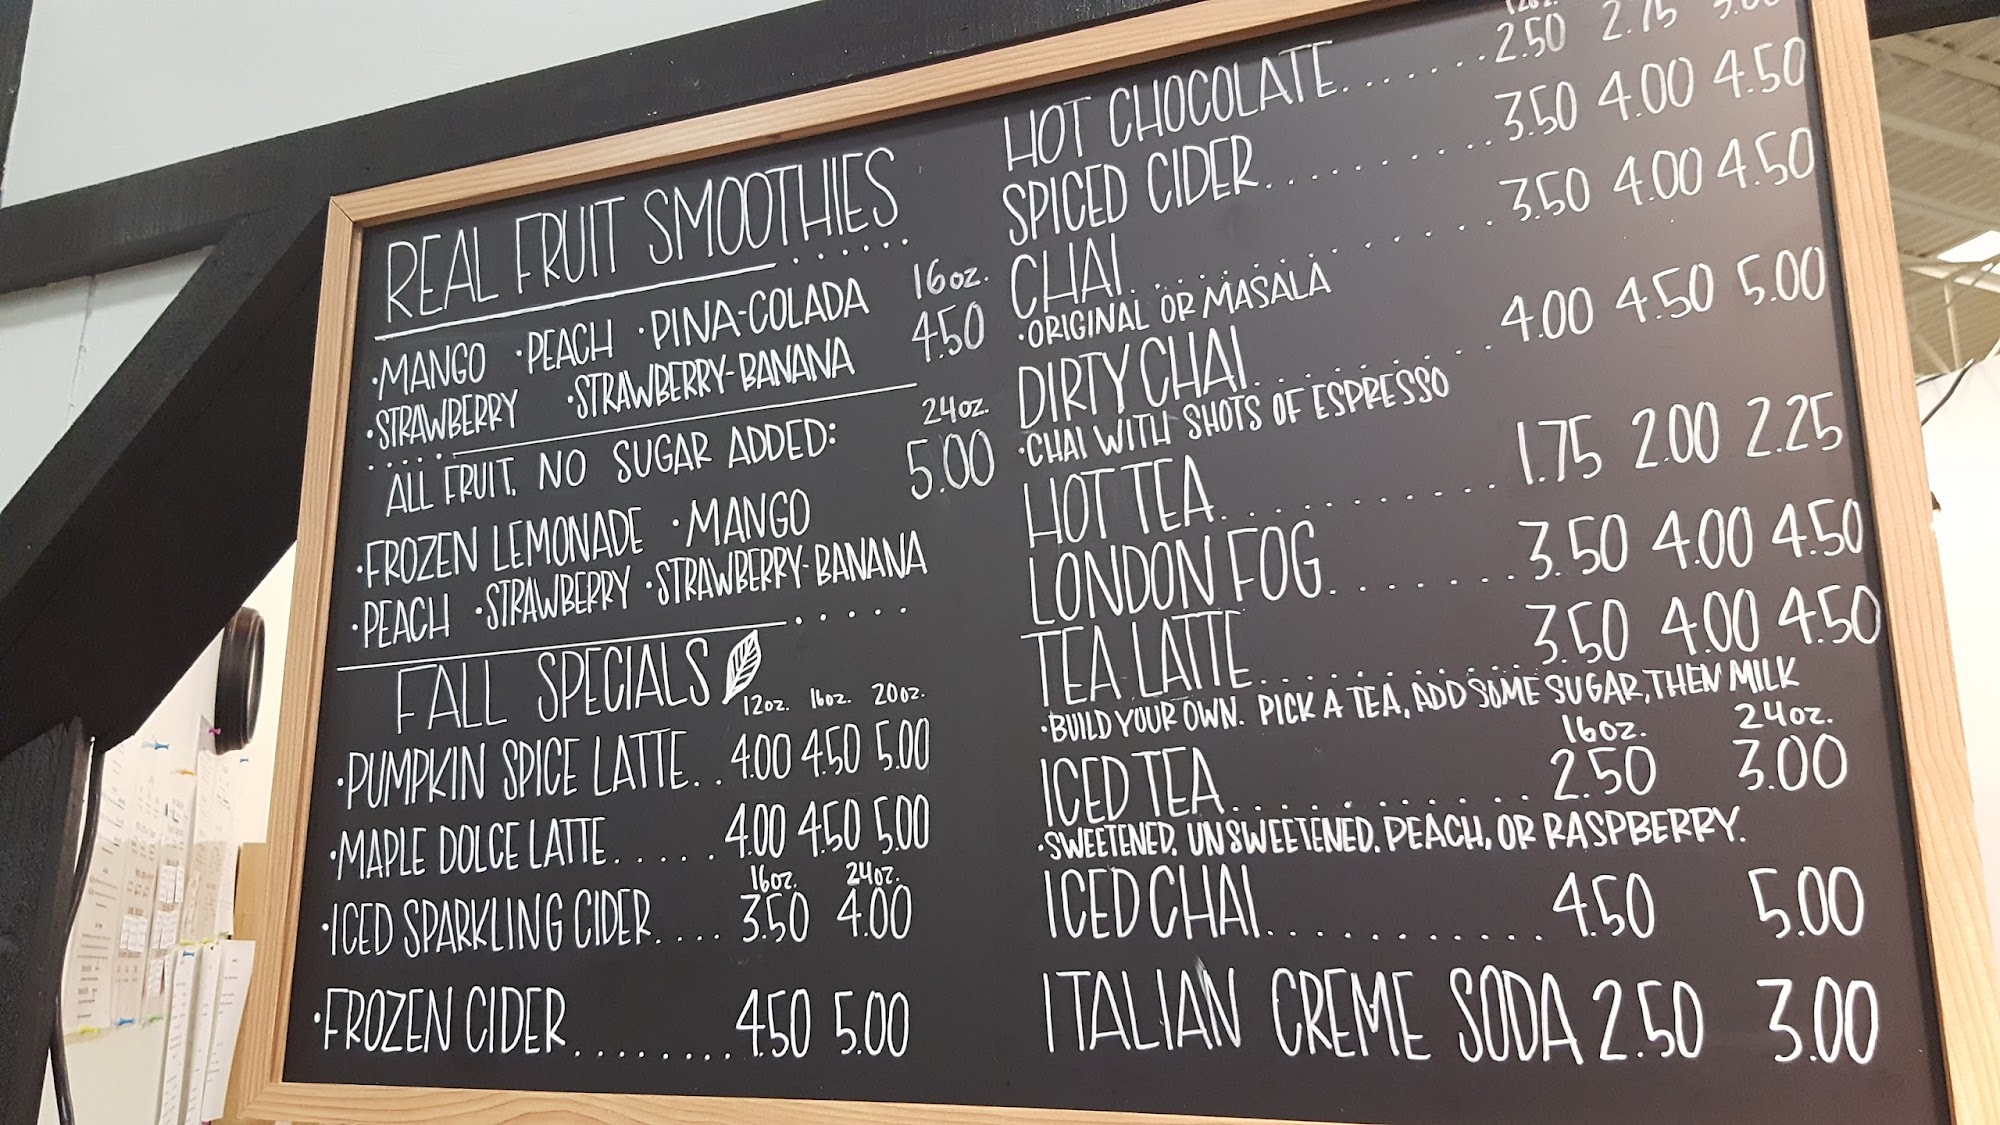 REAL FRUIT SMOOTHIES
16oz.
•MANGO •PEACH •PINA-COLADA 4.50
•STRAWBERRY •STRAWBERRY-BANANA
24oz.
ALL FRUIT, NO SUGAR ADDED: 5.00
•FROZEN LEMONADE •MANGO
•PEACH •STRAWBERRY •STRAWBERRY-BANANA
FALL SPECIALS
12oz. 16oz. 20oz.
•PUMPKIN SPICE LATTE.. 4.00 4.50 5.00
•MAPLE DOLCE LATTE...... 4.00 4.50 5.00
16oz. 24oz.
•ICED SPARKLING CIDER.... 3.50 4.00
•FROZEN CIDER........ 4.50 5.00
12oz.
HOT CHOCOLATE....... 2.50 2.75 3.00
SPICED CIDER......... 3.50 4.00 4.50
CHAI............. 3.50 4.00 4.50
•ORIGINAL OR MASALA
DIRTY CHAI......... 4.00 4.50 5.00
•CHAI WITH SHOTS OF ESPRESSO
HOT TEA........... 1.75 2.00 2.25
LONDON FOG....... 3.50 4.00 4.50
TEA LATTE........... 3.50 4.00 4.50
•BUILD YOUR OWN. PICK A TEA, ADD SOME SUGAR, THEN MILK
16oz. 24oz.
ICED TEA........... 2.50 3.00
•SWEETENED, UNSWEETENED, PEACH, OR RASPBERRY.
ICED CHAI............ 4.50 5.00
ITALIAN CREME SODA 2.50 3.00